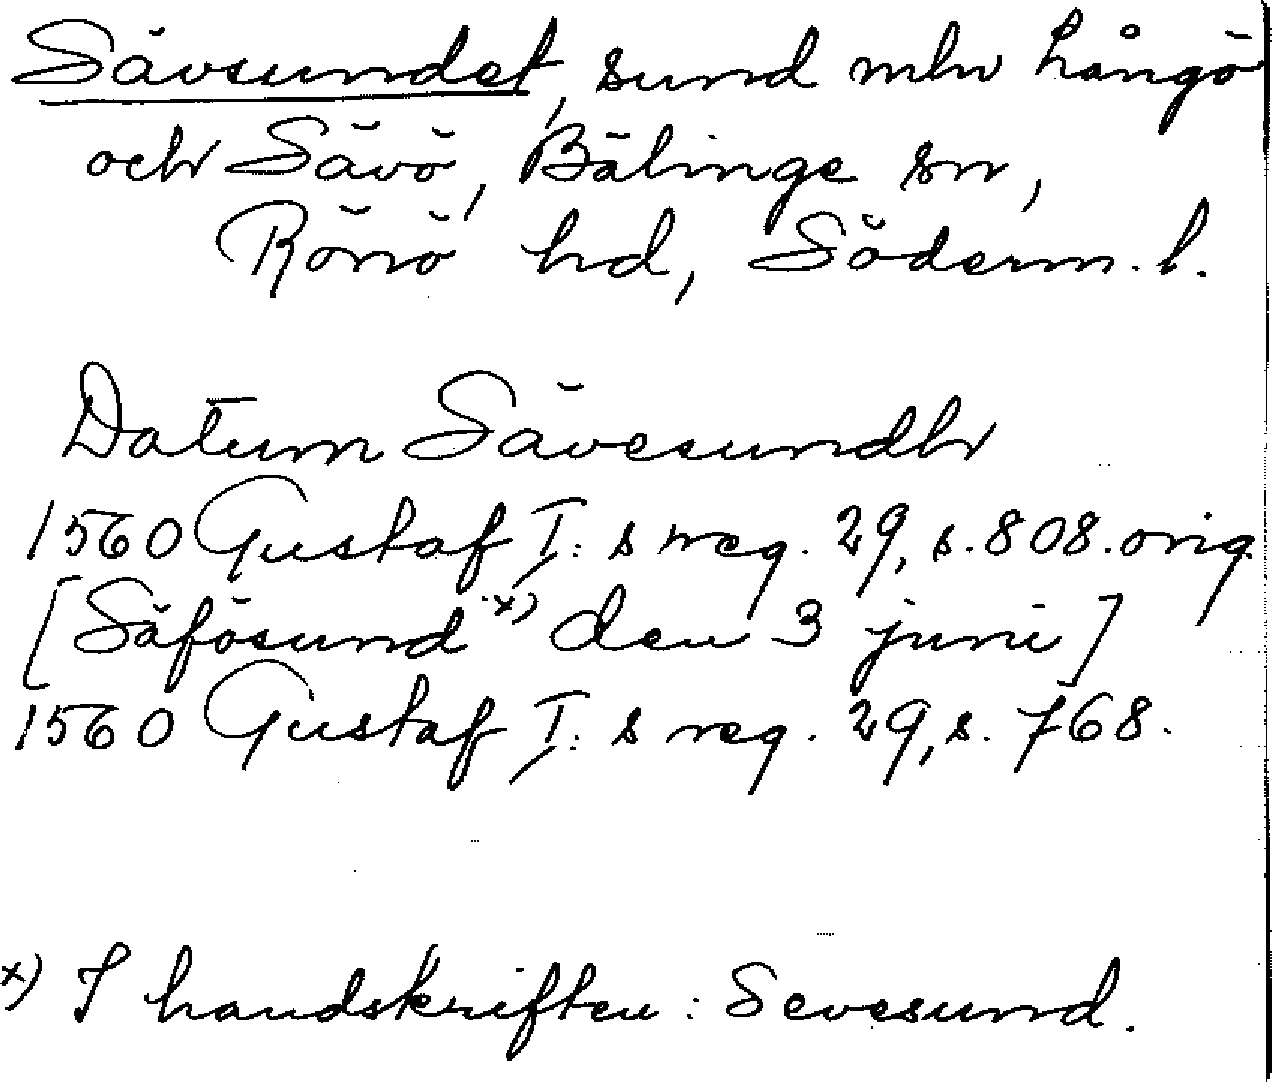 Sävsundet, sund mln Långö
och Sävö, Bälinge sn,
Rönö hd, Söderm. l.
Datum Sävesundh
1560 Gustaf I:s reg. 29, s. 808. orig.
[Säfösund x) den 3 juni]
1560 Gustaf I:s reg. 29, s. 768.
x) I handskriften: Sevesund.